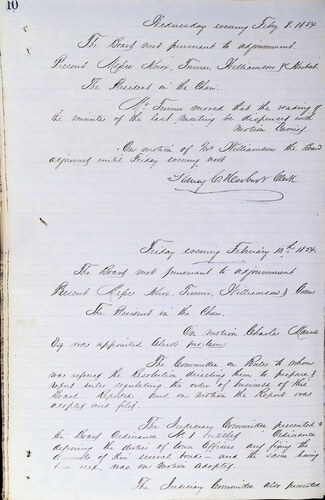 10
Wednesday evening Feby 8. 1854
The Board met pursuant to adjournment
Present Messrs Turner, Williamson & Herbert
The President in the Chair.
Mr Turner moved that the reading of
the minutes of the last meeting be dispensed with
Motion Carried
On motion of Mr Williamson the Board
adjourned until Friday evening next
Clerk
Friday evening February 10th 1854
The Board met pursuant to adjournment
Present Messrs Turner, Williamson &
The President in the Chair
On motion Charles
Esq was appointed Clerk protem
The Committee on Rules to whom
was referred the Resolution directing them to prepare &
report rules regulating the order of business of this
Board reported and on motion the Report was
adopted and filed.
The Judiciary Committee presented to
the Board Ordinance No 1 entitled Ordinance
defining the duties of Town Officers and fixing the
amounts of their several bonds and the same having
been read, was on motion adopted.
The Judiciary Committee also presented